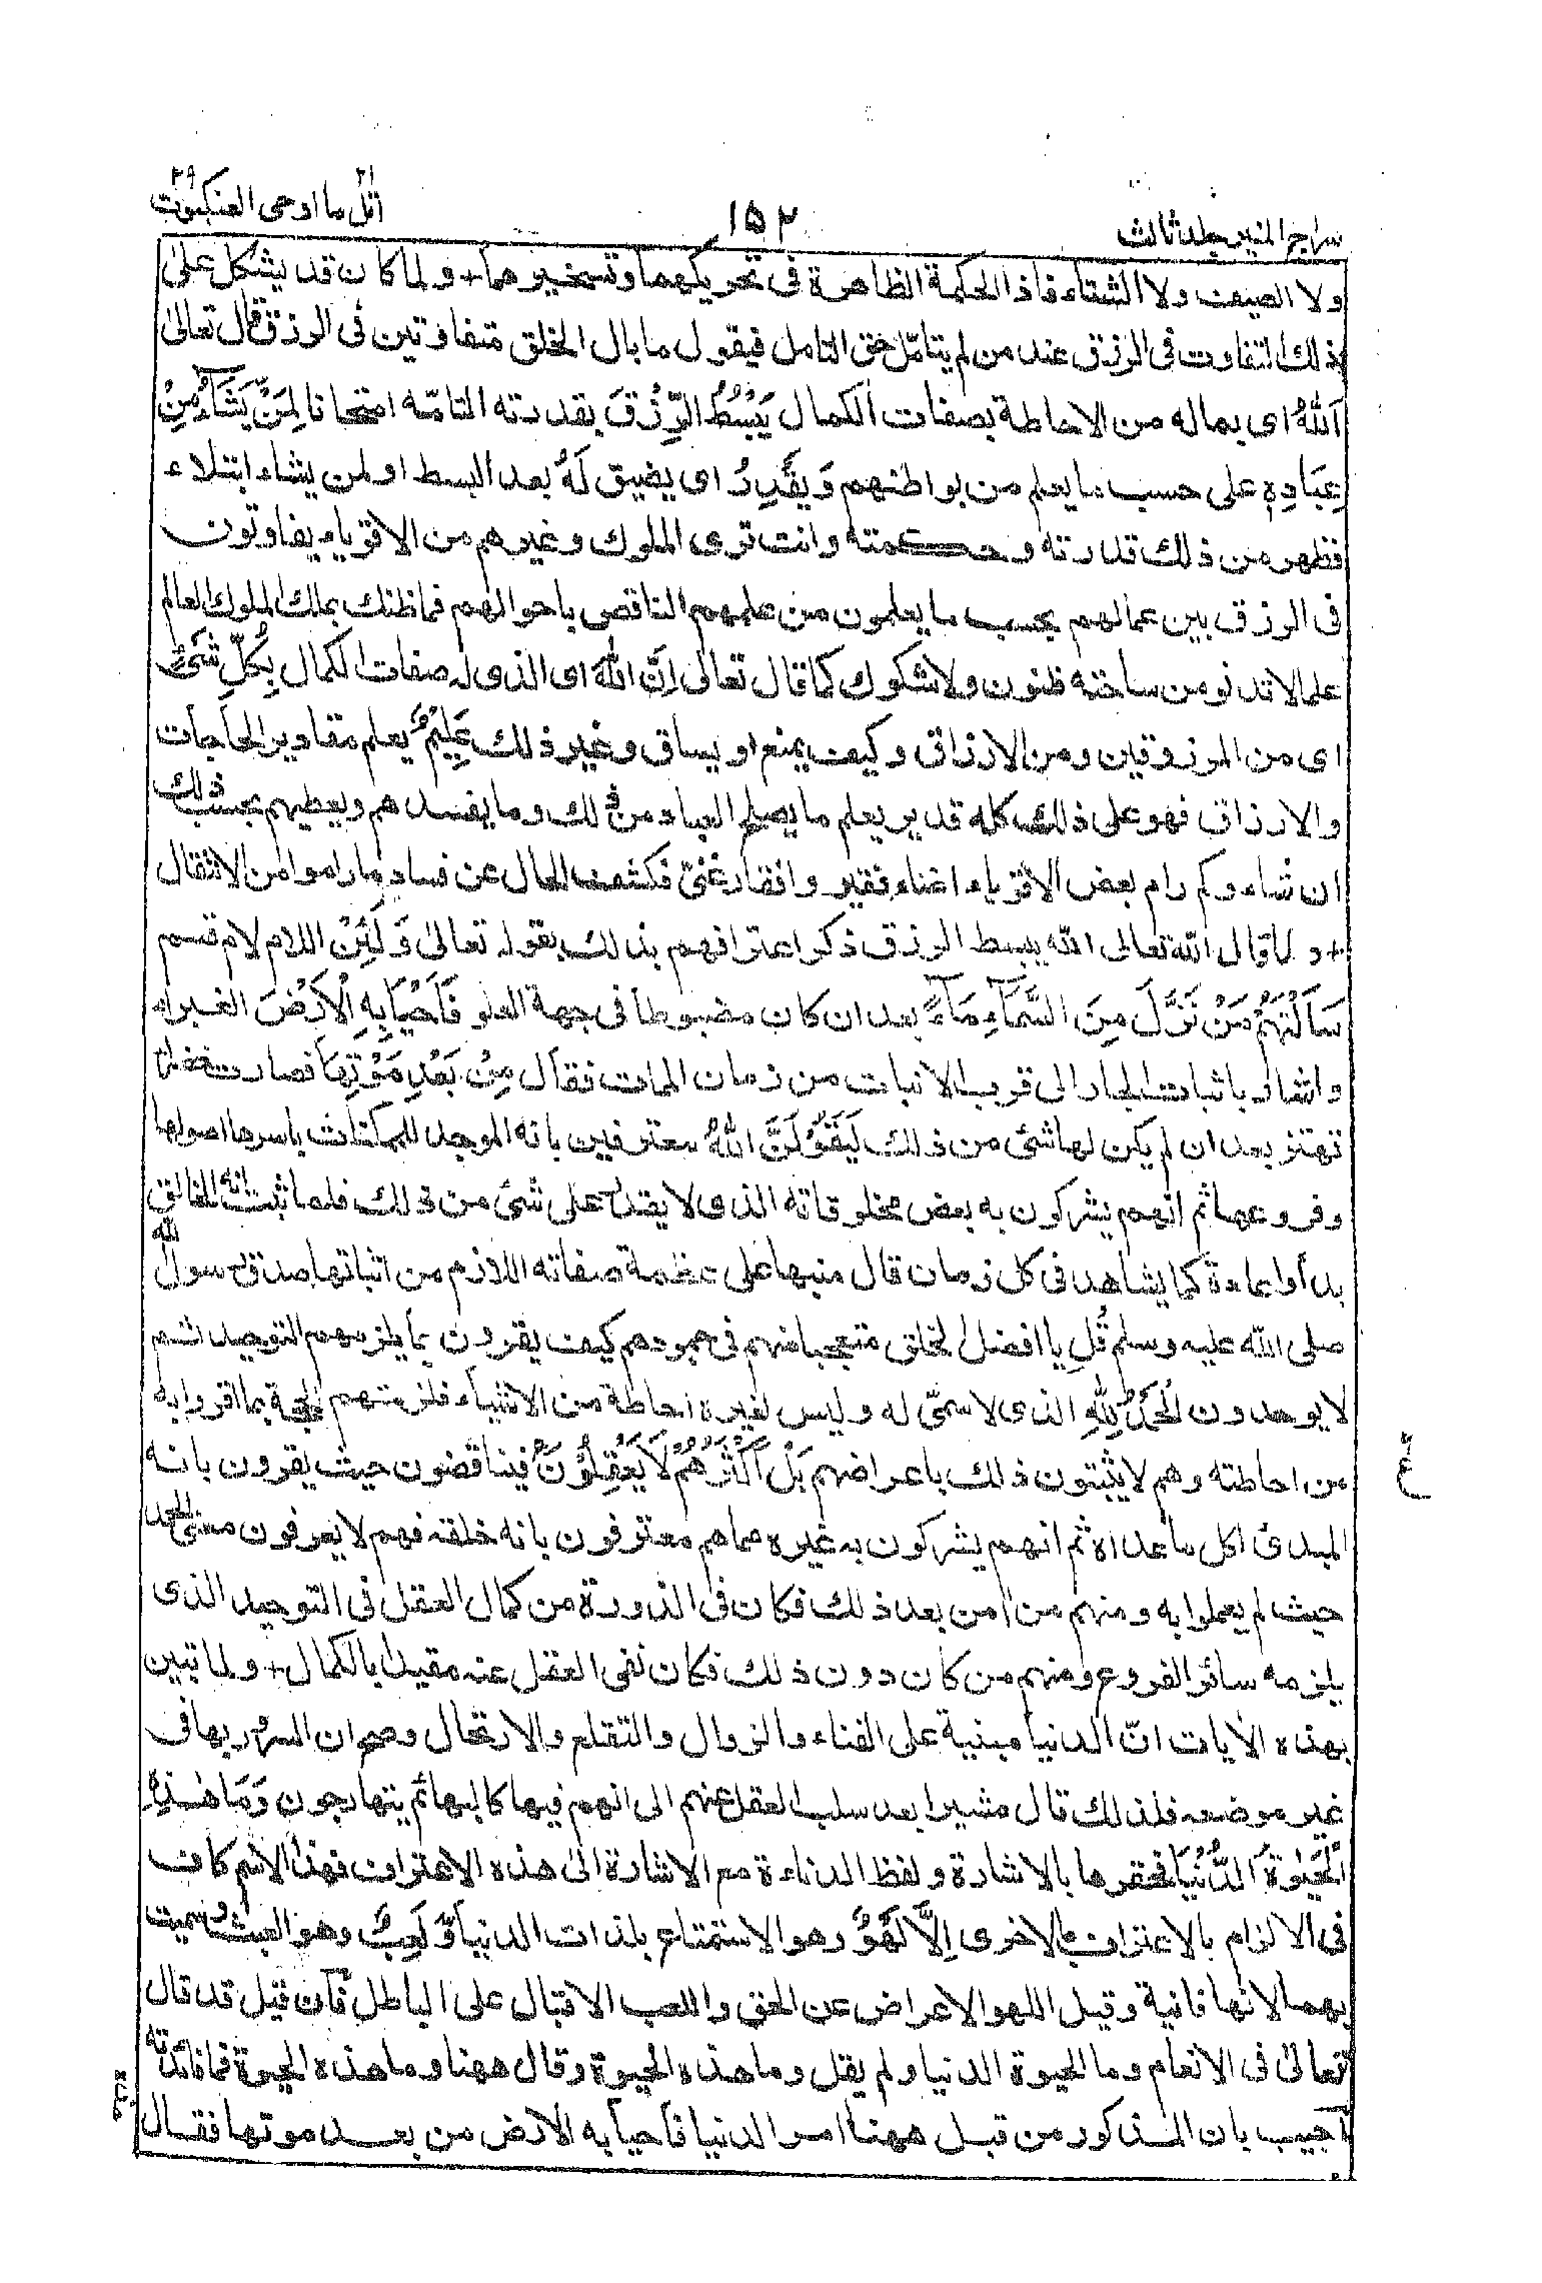 سراج المنير جلد ثالث
١٥٢
اتل ما اوحى ٢١ العنكبوت ٢٩
ولا الصيف ولا الشتاء فاذا الحكمة الظاهرة فى تحريكهما وتسخيرهما + ولما كان قد يشكل على
ذلك التفاوت فى الرزق عند من لم يتامّل حق التامل فيقول ما بال الخلق متفاوتين فى الرزق قال تعالى
اَللّٰهُ اى بماله من الاحاطة بصفات الكمال يَبْسُطُ الرِّزْقَ بقدرته التامّه امتحانا لِمَنْ يَّشَآءُ مِنْ
عِبَادِهٖ على حسب ما يعلم من بواطنهم وَيَقْدِرُ اى يضيق لَهٗ بعد البسط او لمن يشاء ابتلاء
فظهر من ذلك قدرته وحكمته وانت ترى الملوك وغيرهم من الاقوياء يفاوتون
فى الرزق بين عمالهم بحسب ما يعلمون من علمهم الناقص باحوالهم فما ظنك بملك الملوك العالم
علما لا تدنو من ساحته ظنون ولا شكوك كما قال تعالى اِنَّ اللّٰهَ اى الذى له صفات الكمال بِكُلِّ شَیْءٍ
اى من المرزوقين ومن الارزاق وكيف يمنع او يساق وغير ذلك عَلِيْمٌ يعلم مقادير الحاجات
والارزاق فهو على ذلك كله قدير يعلم ما يصلح العباد من ذلك وما يفسدهم ويعطيهم بحسب ذلك
ان شاء وكم رام بعض الاقوياء اغناء فقير وافقار غنىّ فكشف الحال عن فساد ما راموا من الانتقال
+ ولما قال الله تعالى الله يبسط الرزق ذكر اعترافهم بذلك بقوله تعالى وَلَئِنْ اللام لام قسم
سَاَلْتَهُمْ مَنْ نَّزَّلَ مِنَ السَّمَآءِ مَآءً بعد ان كان مضبوطا فى جهة العلو فَاَحْيَا بِهِ الْاَرْضَ الغبراء
واشار باثبات الجار الى قرب الانبات من زمان الممات فقال مِنْ بَعْدِ مَوْتِهَا فصارت خضراء
تهتز بعد ان لم يكن لها شئ من ذلك لَيَقُوْلُنَّ اللّٰهُ معترفين بانه الموجد للممكنات باسرها اصولها
وفروعها ثم انهم يشركون به بعض مخلوقاته الذى لا يقدر على شئ من ذلك فلما ثبت انه الخالق
بدأ واعادة كما يشاهد فى كل زمان قال منبها على عظمة صفاته اللازم من اثباتها صدق رسول الله
صلى الله عليه وسلم قُلِ يا افضل الخلق متعجبا منهم فى جمودهم كيف يقرون بما يلزمهم التوحيد ثم
لا يوحدون الْحَمْدُ لِلّٰهِ الذى لا سمىّ له وليس لغيره احاطة من الاشياء فلزمتهم الحجة بما اقروا به
من احاطته وهم لا يثبتون ذلك باعراضهم بَلْ اَكْثَرُهُمْ لَا يَعْقِلُوْنَ فيناقضون حيث يقرون بانه
المبدئ لكل ما عداه ثم انهم يشركون به غيره مما هم معترفون بانه خلقه فهم لا يعرفون معنى الحمد
حيث لم يعملوا به ومنهم من امن بعد ذلك فكان فى الذروة من كمال العقل فى التوحيد الذى
يلزمه سائر الفروع ومنهم من كان دون ذلك فكان نفى العقل عنه مقيدا بالكمال + ولما تبين
بهذه الايات انّ الدنيا مبنية على الفناء والزوال والتقلع والارتحال وصح ان السرور بها فى
غير موضعه فلذلك قال مشيرا بعد سلب العقل عنهم الى انهم فيها كالبهائم يتهارجون وَمَا هٰذِهِ
الْحَيٰوةُ الدُّنْيَا فحقرها بالاشارة ولفظ الدناءة مع الاشارة الى هذه الاعتراف فهذا الاسم كاف
فى الالزام بالاعتراف بالاخرى اِلَّا لَهْوٌ وهو الاستمتاع بلذات الدنيا وَّلَعِبٌ وهو العبث وسميت
بهما لانها فانية وقيل اللهو الاعراض عن الحق واللعب الاقبال على الباطل فان قيل قد قال
تعالى فى الانعام وما الحيوة الدنيا ولم يقل وما هذه الحيوة وقال ههنا وما هذه الحيوة فما فائدته
اجيب بان المذكور من قبل ههنا امر الدنيا فاحيا به الارض من بعد موتها فقال
ع